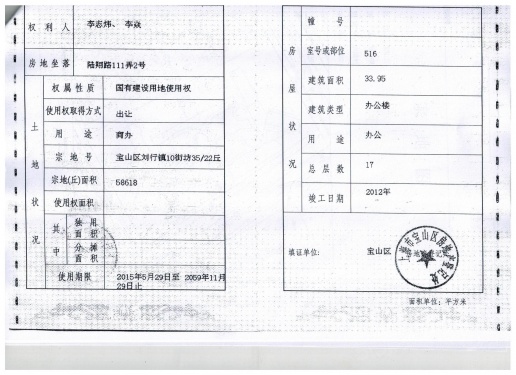 权利人 李志炜、李焱
房地坐落 陆翔路111弄2号
土地状况
权属性质 国有建设用地使用权
使用权取得方式 出让
用途 商办
宗地号 宝山区刘行镇10街坊35/22丘
宗地(丘)面积 58618
使用权面积
其中
独用面积
分摊面积
使用期限 2015年5月29日至 2059年11月
29日止
房屋状况
幢号
室号或部位 516
建筑面积 33.95
建筑类型 办公楼
用途 办公
总层数 17
竣工日期 2012年
填证单位: 宝山区
上海市宝山区房地产登记处
面积单位: 平方米